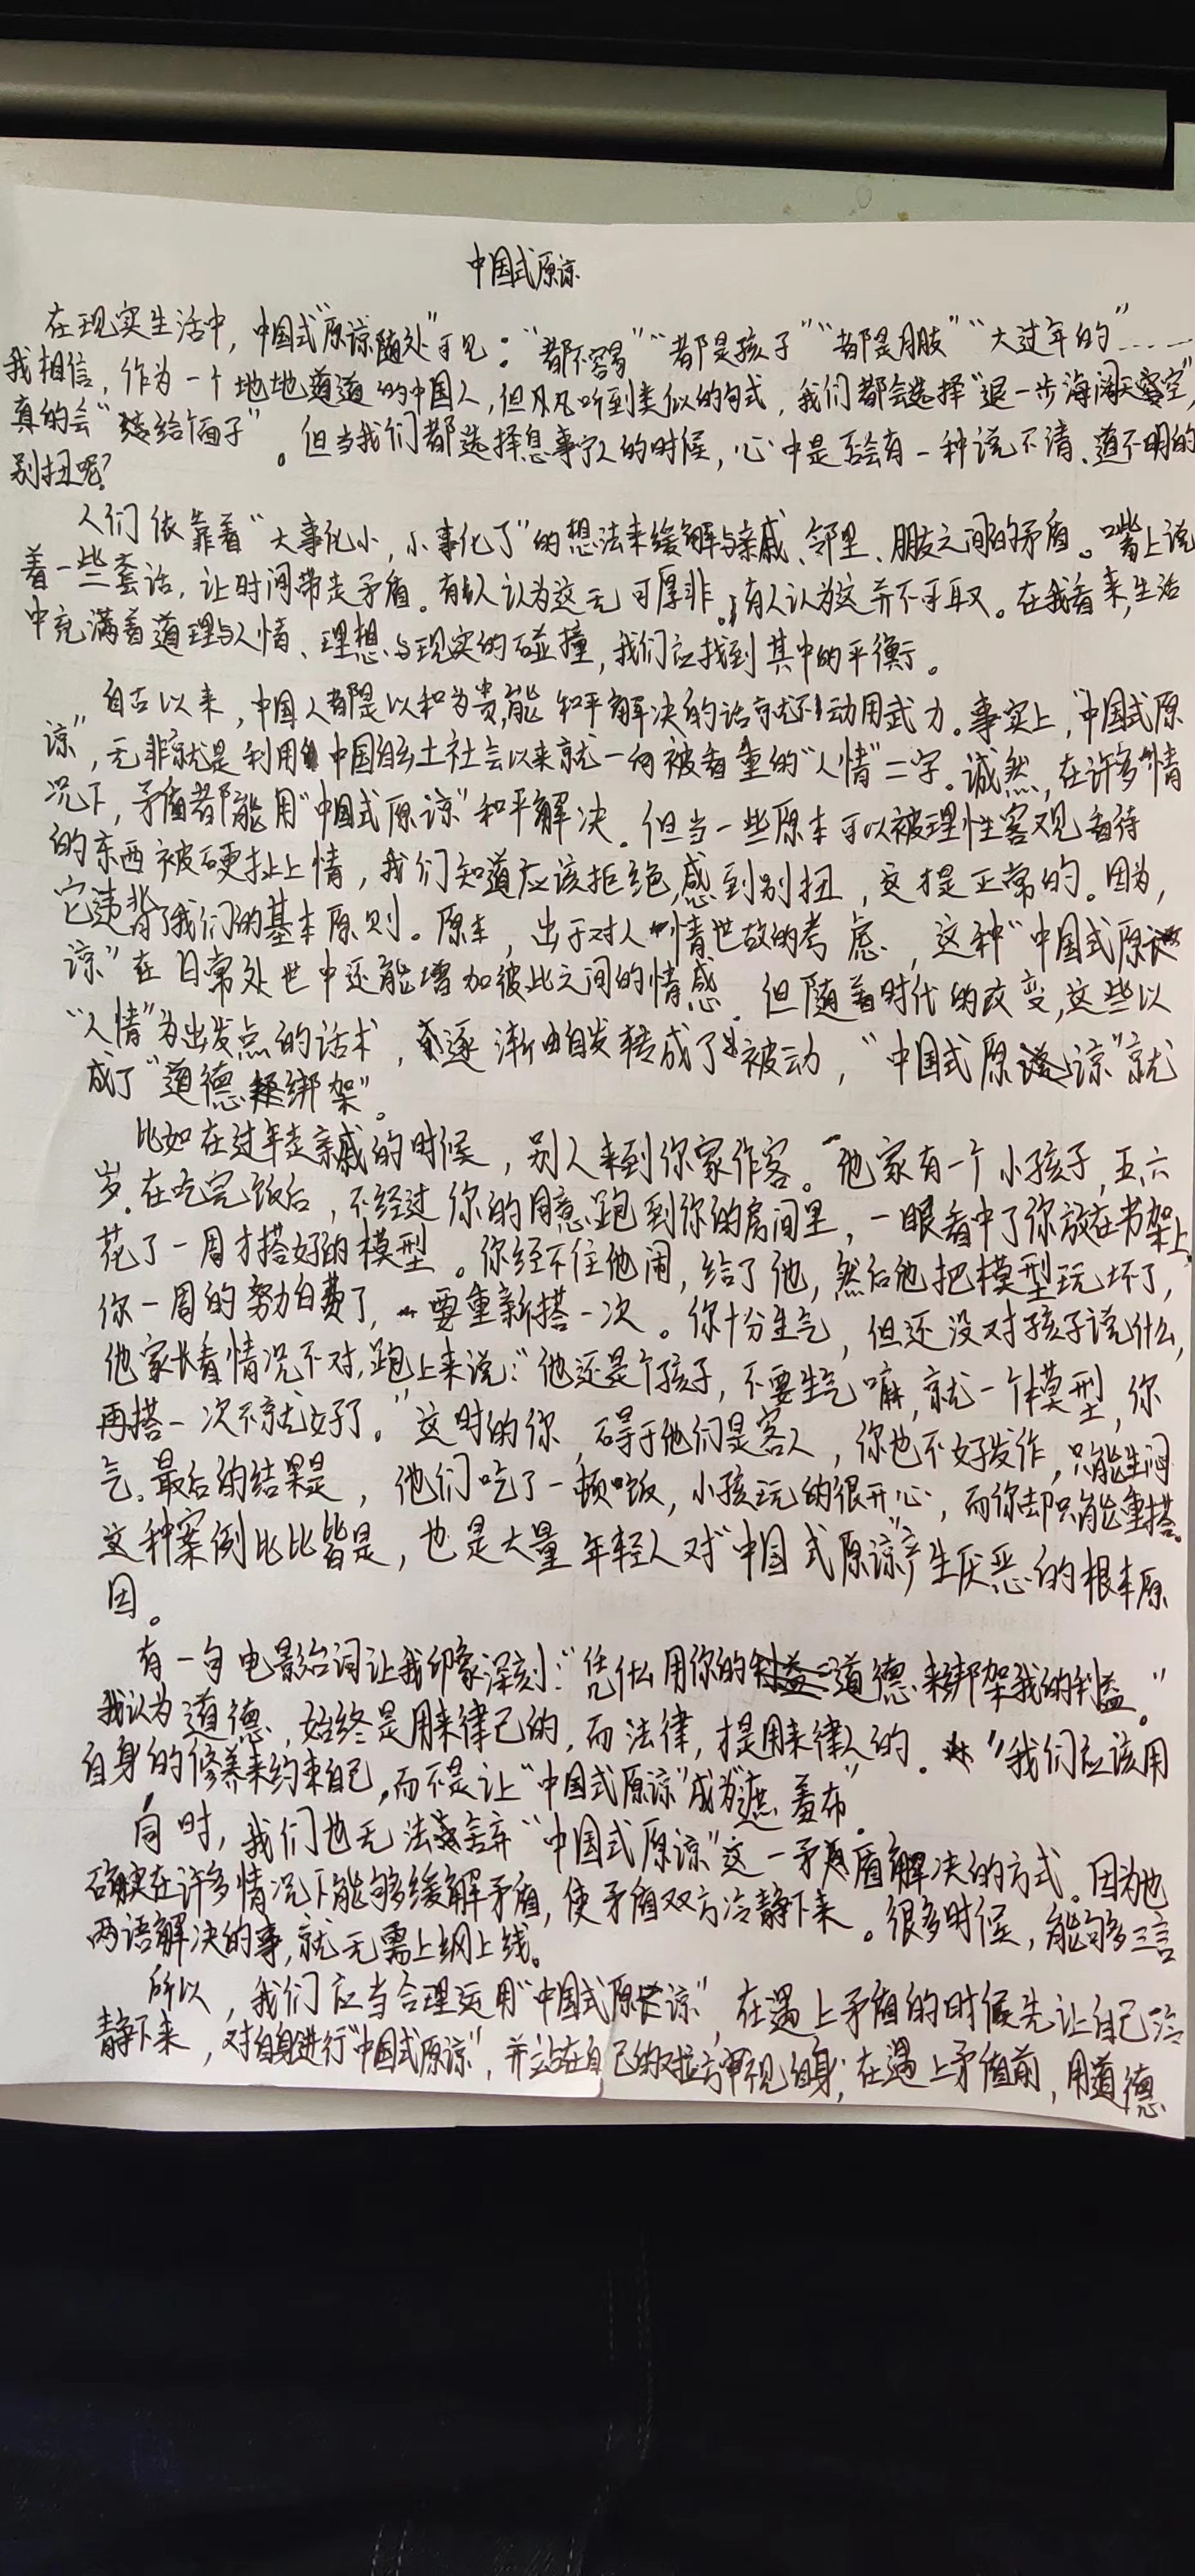 中国式原谅
在现实生活中，中国式“原谅随处”可见：“都不容易”“都是孩子”“都是朋友”“大过年的”……
我相信，作为一个地地道道的中国人，但凡凡听到类似的句式，我们都会选择“退一步海阔天空”，
真的会“给个面子”。但当我们都选择息事宁人的时候，心中是否会有一种说不清、道不明的
别扭呢？
人们依靠着“大事化小，小事化了”的想法来缓解与亲戚、邻里、朋友之间的矛盾。嘴上说
着一些套话，让时间带走矛盾。有人认为这无可厚非，有人认为这并不可取。在我看来，生活
中充满着道理与人情、理想与现实的碰撞，我们应找到其中的平衡。
自古以来，中国人都是以和为贵，能和平解决的话就不动用武力。事实上，“中国式原
谅”，无非就是利用中国自乡土社会以来就一向被看重的“人情”二字。诚然，在许多情
况下，矛盾都能用“中国式原谅”和平解决。但当一些原本可以被理性客观看待
的东西被硬扯上情，我们知道应该拒绝，感到别扭，这才是正常的。因为，
它违背了我们的基本原则。原本，出于对人情世故的考虑，这种“中国式原
谅”在日常处世中还能增加彼此之间的情感。但随着时代的改变，这些以
“人情”为出发点的话术，逐渐由自发转成了被动，“中国式原谅”就
成了“道德绑架”。
比如在过年走亲戚的时候，别人来到你家作客。他家有一个小孩子，五六
岁。在吃完饭后，不经过你的同意跑到你的房间里，一眼看中了你放在书架上
花了一周才搭好的模型。你经不住他闹，给了他，然后他把模型玩坏了，
你一周的努力白费了，要重新搭一次。你十分生气，但还没对孩子说什么，
他家长看情况不对，跑上来说：“他还是个孩子，不要生气嘛，就一个模型，你
再搭一次不就好了。”这时的你，碍于他们是客人，你也不好发作，只能生闷
气。最后的结果是，他们吃了一顿饭，小孩玩的很开心，而你却只能重搭。
这种案例比比皆是，也是大量年轻人对“中国式原谅”产生厌恶的根本原
因。
有一句电影台词让我印象深刻：“凭什么用你的道德来绑架我的利益。”
我认为道德，始终是用来律己的，而法律，才是用来律人的。我们应该用
自身的修养来约束自己，而不是让“中国式原谅”成为“遮羞布”。
同时，我们也无法舍弃“中国式原谅”这一矛盾解决的方式。因为他
确实在许多情况下能够缓解矛盾，使矛盾双方冷静下来。很多时候，能够三言
两语解决的事，就无需上纲上线。
所以，我们应当合理运用“中国式原谅”，在遇上矛盾的时候先让自己冷
静下来，对自身进行“中国式原谅”，并站在自己的对立方审视自身；在遇上矛盾前，用道德